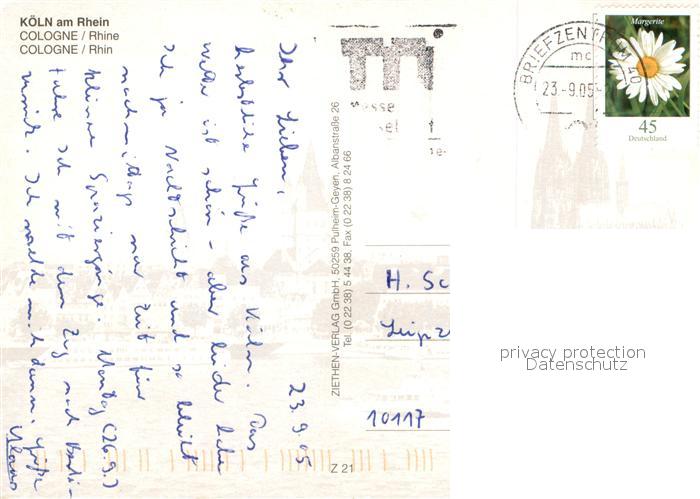 KÖLN am Rhein
COLOGNE / Rhine
COLOGNE / Rhin
23.9.05
Ihr Lieben,
herbstliche Grüße aus Köln. Das
Wetter ist schön - aber leider habe
ich ja Nachtschicht und so bleibt
nachmittags nur Zeit für
kleine Spaziergänge. Montag (26.9.)
fahre ich mit dem Zug nach Berlin
zurück. Ich melde mich dann. Grüße
ZIETHEN-VERLAG GmbH, 50259 Pulheim-Geyen, Albanstraße 26
Tel. (0 22 38) 5 44 38, Fax (0 22 38) 8 24 66
Z 21
BRIEFZENTRUM
mc
23.-9.05
40
Margerite
45
Deutschland
H. Sc
Leipz
10117
privacy protection
Datenschutz